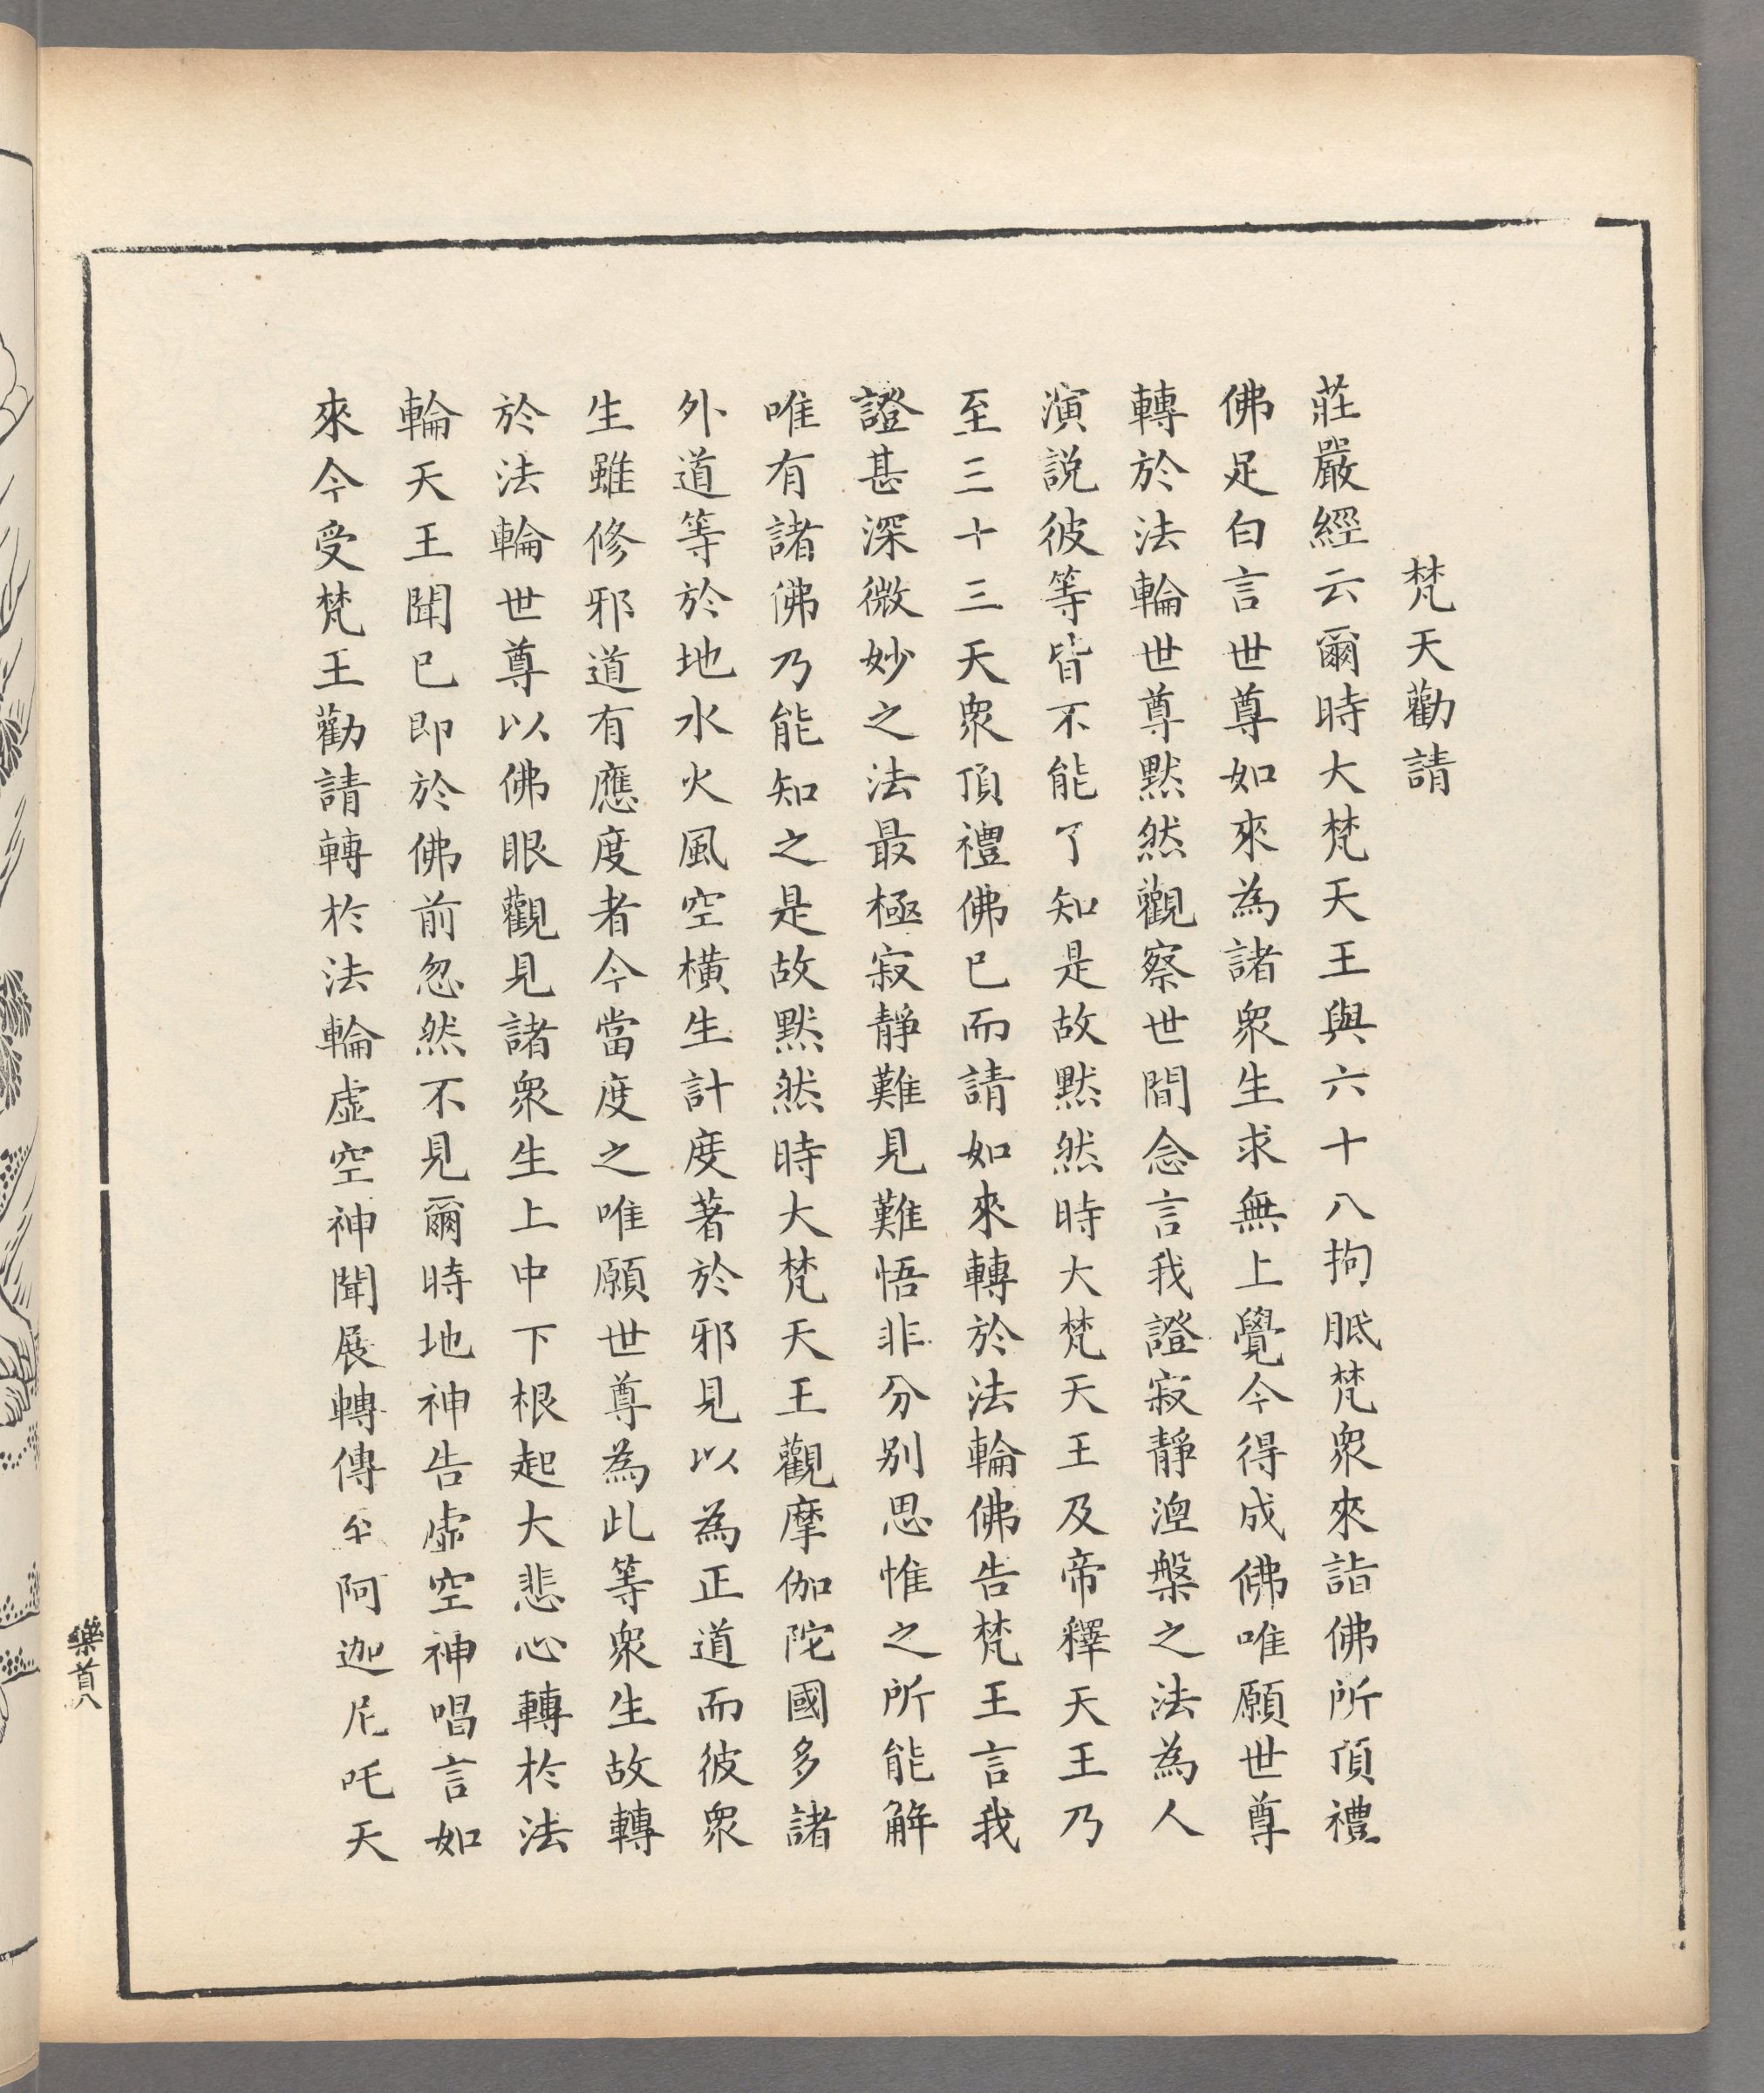 梵天勸請
莊嚴經云爾時大梵天王與六十八拘胝梵眾來詣佛所頂禮
佛足白言世尊如來為諸眾生求無上覺今得成佛唯願世尊
轉於法輪世尊默然觀察世間念言我證寂靜湼槃之法為人
演說彼等皆不能了知是故默然時大梵天王及帝釋天王乃
至三十三天眾頂禮佛已而請如來轉於法輪佛告梵王言我
證甚深微妙之法最極寂靜難見難悟非分別思惟之所能解
唯有諸佛乃能知之是故默然時大梵天王觀摩伽陀國多諸
外道等於地水火風空橫生計度著於邪見以為正道而彼眾
生雖修邪道有應度者今當度之唯願世尊為此等眾生故轉
於法輪世尊以佛眼觀見諸眾生上中下根起大悲心轉於法
輪天王聞已即於佛前忽然不見爾時地神告虛空神唱言如
來今受梵王勸請轉於法輪虛空神聞展轉傳至阿迦尼吒天
樂首八